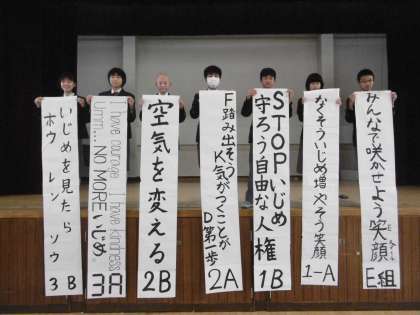 いじめを見たら
ホウ レン ソウ
3B
I have courage I have kindness
Umm... NO MOREいじめ
3A
空気を変える
2B
F踏み出そう
K気がつくことが
D第一歩
2A
STOPいじめ
守ろう自由な人権
1B
なくそういじめ増やそう笑顔
1-A
みんなで咲かせよう笑顔
E組